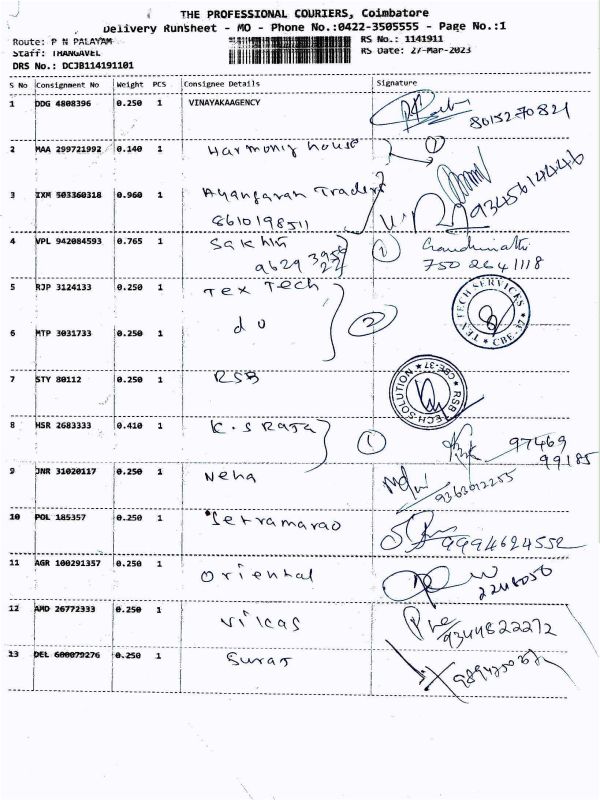 THE PROFESSIONAL COURIERS, Coimbatore
Delivery RunSheet - MO - Phone No.:0422-3505555 - Page No.:1
Route: P N PALAYAM
RS No.: 1141911
Staff: THANGAVEL
RS Date: 27-Mar-2023
DRS No.: DCJB114191101
S No Consignment No Weight PCS Consignee Details Signature
1 DDG 4808396 0.250 1 VINAYAKAAGENCY
8015270821
2 MAA 299721992 0.140 1 Harmony house 1
3 IXM 503360318 0.960 1 Ayangaran Traders
8610198511
9345614446
4 VPL 942084593 0.765 1 Sakhti 1
96293
7502641118
5 RJP 3124133 0.250 1 Tex Tech
TEX TECH SERVICES ★ CBE-37 ★
6 MTP 3031733 0.250 1 do 2
7 STY 80112 0.250 1 RSB
RSB TECH SOLUTION ★ CBE-37 ★
8 HSR 2683333 0.410 1 K.S RAJA 1
97469
99185
9 JNR 31020117 0.250 1 Neha
9363012255
10 POL 185357 0.250 1 Setramarao
9994624552
11 AGR 100291357 0.250 1 Oriental
2248050
12 AMD 26772333 0.250 1 Vikas
9344822272
13 DEL 600079276 0.250 1 Suraj